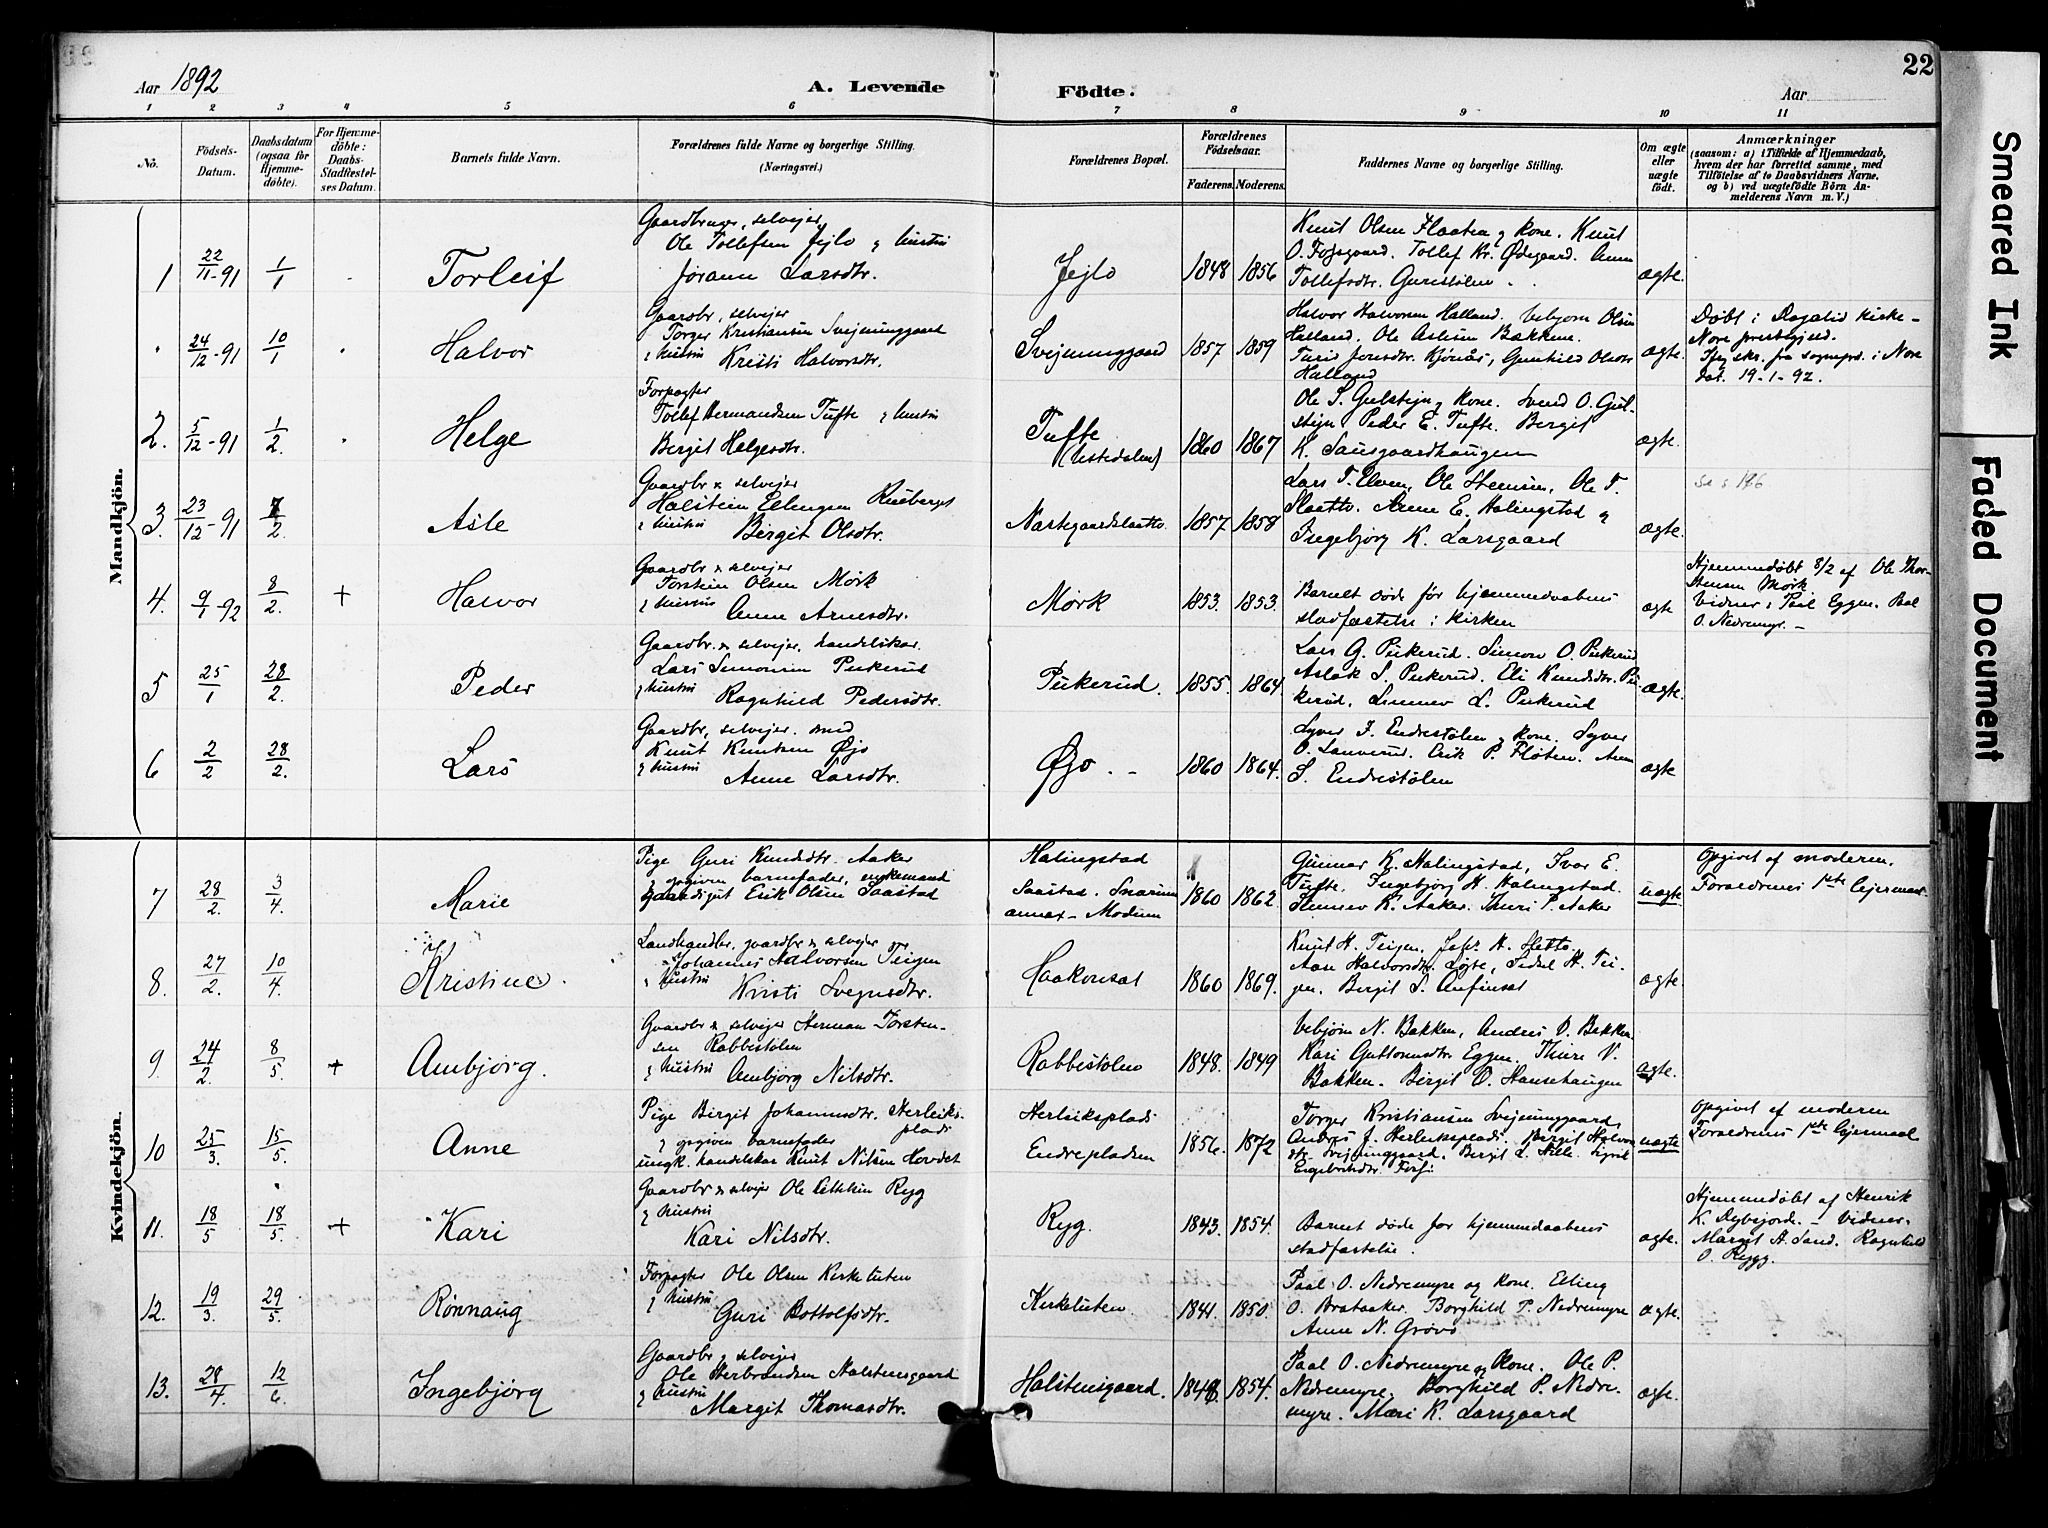 22
Aar 1892
A. Levende Födte.
Aar
1 2 3 4 5 6 7 8 9 10 11
No.
Födsels-Datum.
Daabsdatum (ogsaa for Hjemmedöbte).
For Hjemmedöbte: Daabs-Stadfæstelses Datum.
Barnets fulde Navn.
Forældrenes fulde Navne og borgerlige Stilling.
(Næringsvei.)
Forældrenes Bopæl.
Forældrenes Födselsaar.
Faderens. Moderens.
Faddernes Navne og borgerlige Stilling.
Om ægte eller uægte födt.
Anmærkninger
(saasom: a) i Tilfælde af Hjemmedaab,
hvem der har forrettet samme, med
Tilföielse af to Daabsvidners Navne.
og b) ved uægtefödte Börn Anmelderens Navn m. V.)
Mandkjön.
1 22/11-91 1/1 Torleif
Gaardbruger, selvejer
Ole Tollefsen Jejlo & hustru
Jorann Larsdtr.
Jejlo 1848 1856
Knut Olsen Flaaten & kone. Knut
O. Tollef Kr. Ødegaard. Anne
Tollefsdtr. Guristølen
ægte.
24/12-91 10/1 Halvor
Gaardbr, selvejer
Torger Kristiansen Svejninggaard
& hustru Kristi Halvorsdtr.
Svejninggaard 1857 1859
Halvor Halvorsen Halland. Vebjørn Olsen
Halland. Ole Aslesen Bakken.
Turid Jonsdtr. Kjønaas, Gunhild Olsdtr
Halland
ægte.
Døbt i Rogalid kirke -
Nore prestegjeld.
skr. fra sognepr. i Nore
dat. 19-1-92.
2. 5/12-91 1/2 Helge
Forpagter
Tollef Hermandsen Tufte & hustru
Birgit Helgesdtr.
Tufte
(Ustedalen) 1860 1867
Ole S. Gulstejn & kone. Svend O. Gul-
stejn Peder E. Tufte. Birgit
K. Sausgaardhaugen
ægte.
3. 23/12-91 7/2 Asle
Gaardbr & selvejer
Halstein Ellingsen Rueberget
& hustru Birgit Olsdtr.
Nartegaardslaatto. 1857 1858
Lars T. Elven, Ole Steensen, Ole T.
Slaatto. Anne E. Halingstad &
Ingebjørg K. Larsgaard
ægte.
se s 176
4. 9/1-92 8/2. + Halvor
Gaardbr & selvejer
Torstein Olsen Mørk
& hustru Anne Arnesdtr.
Mørk 1853. 1853.
Barnet døde før hjemmedaabens
stadfæstelse i kirken
ægte
Hjemmedøbt 8/2 af Ole Thor-
stensen Mørk
Vidner: Paal Eggen. Paal
O. Nedremyr. -
5 25/1 28/2 Peder
Gaardbr. & selvejer, handelskar
Lars Simonsen Pukerud
& hustru Ragnhild Pedersdtr.
Pukerud. 1855. 1864.
Lars G. Pukerud. Simon O. Pukerud
Aslak S. Pukerud. Eli Knudsdtr. Pu-
kerud. Linnev L. Pukerud
ægte.
6 2/2 28/2. Lars
Gaardbr, selvejer. smed
Knut Knutsen Øjo
& hustru Anne Larsdtr.
Øjo. - 1860 1864.
Syver I. Endrestølen & kone. Syver
O. Sanverud. Erik P. Fløten. Anne
S. Endrestølen
ægte
Kvindekjön.
7 28/2. 3/4. Marie
Pige Guri Knudsdtr. Aaker
& opgiven barnefader, enkemand
gaardigut Erik Olsen Saastad
Halingstad
Saastad. Snarum
annex - Modum 1860 1862.
Gunnar K. Halingstad, Ivar E.
Tufte. Ingebjørg H. Halingstad.
Linnev K. Aaker. Thuri P. Aaker
uægte
Opgivet af moderen.
Forældrenes 1ste lejermaal.
8. 27/2. 10/4. Kristine.
Landhandler, gaardbr & selvejer
Johannes Halvorsen Teigen
& hustru Kristi Svejnsdtr.
Haakonsæt 1860 1869.
Knut H. Teigen. Johs. H. Sletto
Aase Halvorsdtr. Løgte, Sidsel H. Tei-
gen. Birgit S. Anfinsæt
ægte.
9 24/2. 8/5. + Ambjørg.
Gaardbr & selvejer Herman Torsten-
sen Rabbestølen
& hustru Ambjørg Nilsdtr.
Rabbestølen 1848. 1849
Vebjørn N. Bakken, Andres O. Bakken
Kari Guttormsdtr. Eggen. Thure V.
Bakken. Birgit O. Hansehaugen
ægte.
10 25/3. 15/5. Anne
Pige Birgit Johannesdtr. Herleiks-
plads
& opgiven barnefader
ungk. handelskar Knut Nilsen Hovdet
Herleiksplads
Endrepladsen 1856. 1872
Torger Kristiansen Svejninggaard,
Andres J. Herleiksplads. Birgit Halvors-
dtr Svejninggaard. Birgit L. Sigrid
Engebretsdtr.
uægte
Opgivet af moderen
Forældrenes 1ste lejermaal
11. 18/5 18/5. + Kari
Gaardbr & selvejer Ole Ryg
& hustru
Kari Nilsdtr.
Ryg. 1843. 1854.
Barnet døde før hjemmedaabens
stadfæstelse.
ægte.
Hjemmedøbt af Henrik
K. Dybejorde. - Vidner.
Margit A. Sand. Ragnhild
O. Rygg.
12. 19/3. 29/5. Rønnaug
Forpagter Ole Olsen Kirkeluten
& hustru
Guri Bottolfsdtr.
Kirkeluten 1841. 1850.
Paal O. Nedremyre og kone. Elling
O. Brataaker. Borghild P. Nedremyre
Anne N. Grøvo
ægte.
13. 28/4. 12/6. Ingebjørg
Gaardbr & selvejer
Ole Herbrandsen Halstensgaard
& hustru
Margit Thomasdtr.
Halstensgaard. 1848. 1854.
Paal O. Nedremyre og Kone. Ole P.
Nedremyre. Borghild P. Nedre-
myre. Mari K. Larsgaard
ægte.
Smeared Ink
Faded Document